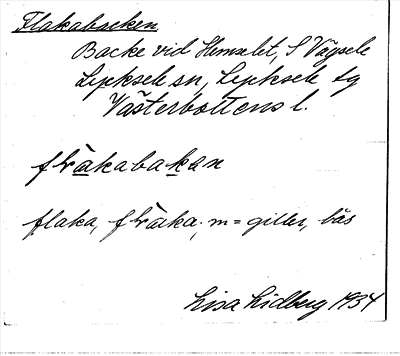 Flakabacken
Backe vid Hemselet, S Vägsele
Lycksele sn, Lycksele tg
Västerbottens l.
fḷàkabakan
flaka, fḷaka, m = giller, bås
Lisa Lidberg 1934